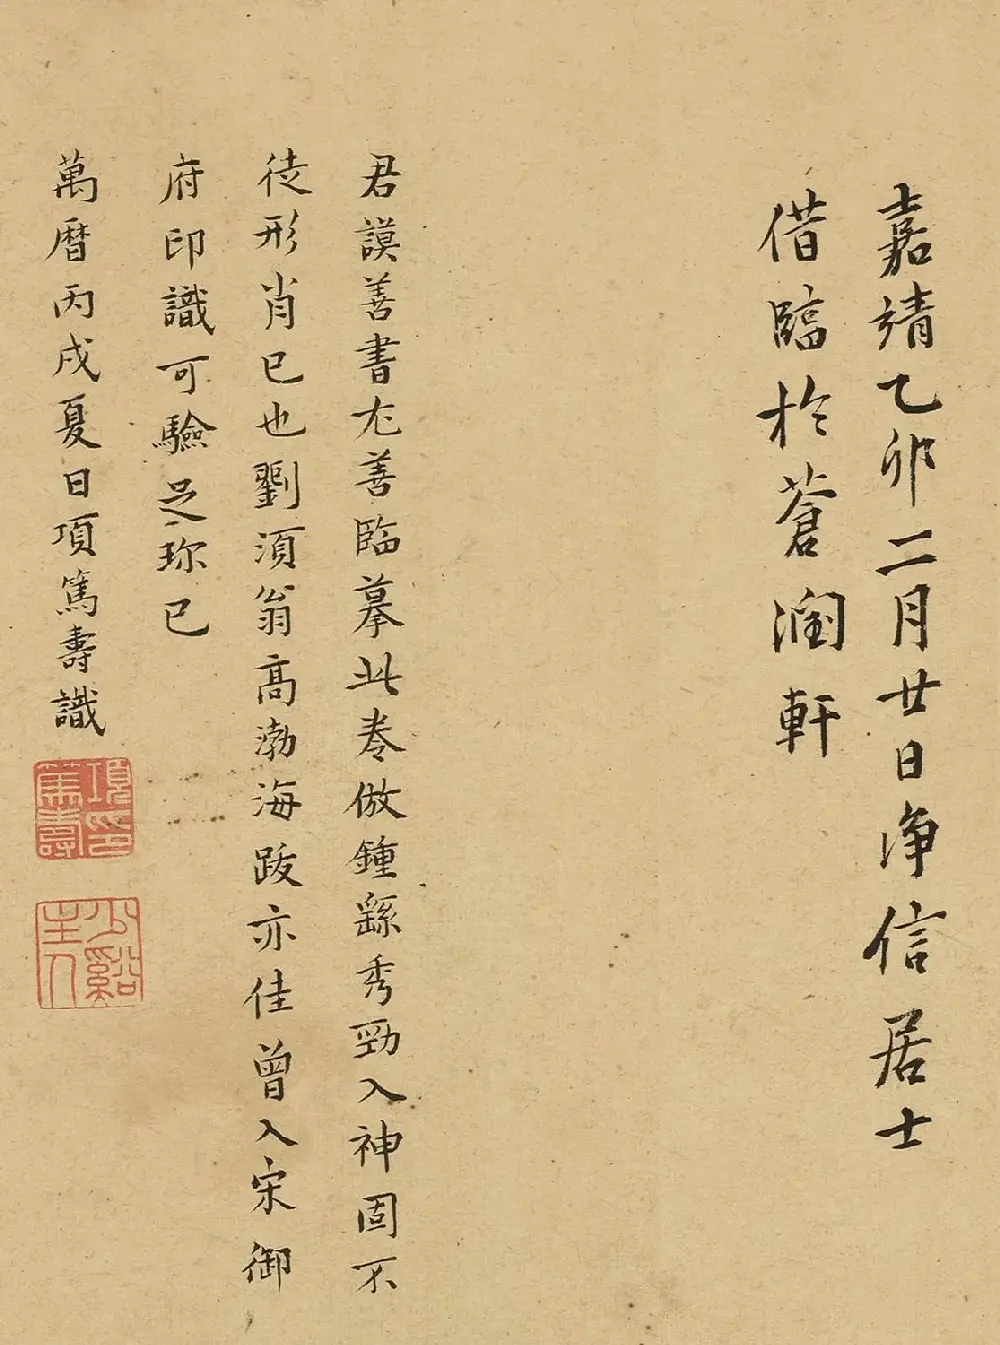 嘉靖乙卯二月廿日淨信居士
借臨於蒼潤軒
君謨善書尤善臨摹此卷倣鍾繇秀勁入神固不
徒形肖已也劉須翁高渤海跋亦佳曾入宋御
府印識可驗足珎已
萬曆丙戌夏日項篤壽識
項篤壽印
少谿主人